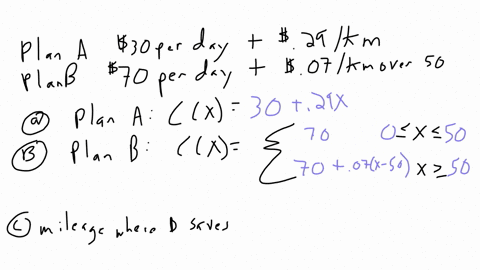 Plan A $30 per day + $.29/km
Plan B $70 per day + $.07/km over 50
(a) Plan A: C(X) = 30 + .29x
(B) Plan B: C(X) = { 70 0 ≤ x ≤ 50
70 + .07(x-50) x ≥ 50
(C) mileage where D saves